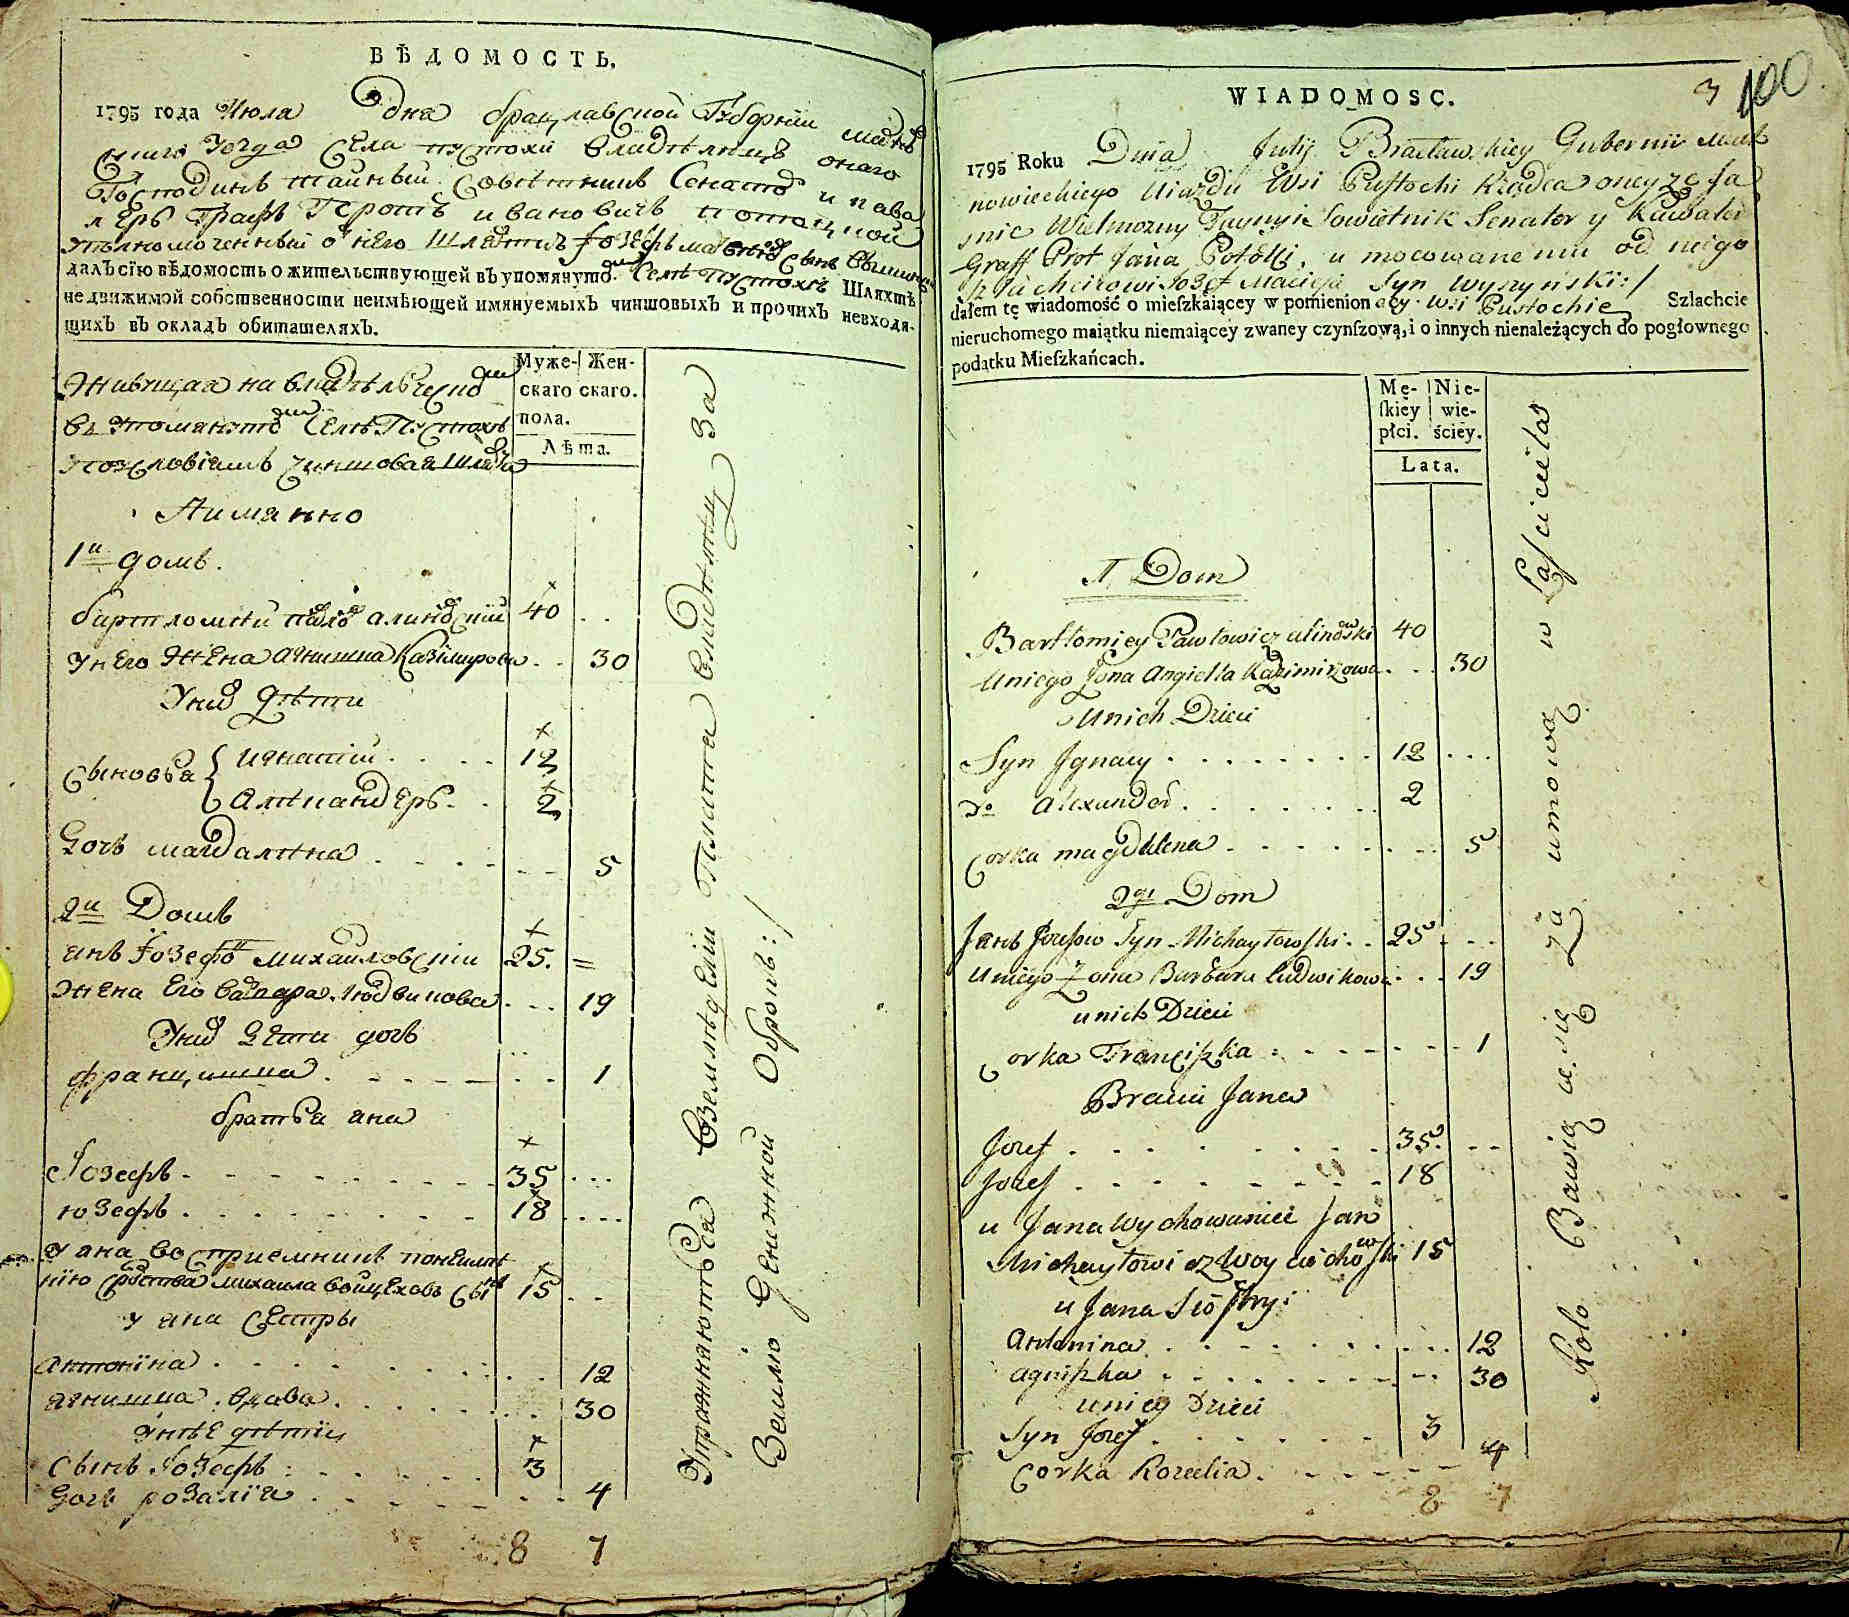 ВѢДОМОСТЬ.
1795 года Июля дня брацлавской Губернии
уезда села пустохи владѣлецъ онаго
Господинъ тайный совѣтникъ Сенаторъ и кава
леръ Графъ Протъ ивановичь потоцкой
уполномоченный о него шляхтичь Іозефъ сынъ
далъ сію вѣдомость о жительствующей въ упомянутом Селѣ Пустохѣ Шляхтѣ
недвижимой собственности неимѣющей имянуемыхъ чиншовыхъ и прочихъ невходя-
щихъ въ окладъ обитателяхъ.
Муже- Жен-
скаго скаго.
пола.
Лѣта.
Живущая на владѣльческой
въ упомянутом Селѣ Пустохѣ
по условіямъ чиншовая шляхта
А имянно
1й домъ.
бартломей павлов алиновскій 40
у него жена агнишка Казимирова 30
У них дѣти
Сыновья { игнатій 12
александеръ 2
Дочь магдалена 5
2й Домъ
янъ Іозефов михайловскій 25.
жена его барбара людвикова 19
У них дети дочь
францишка 1
братья яна
Іозефъ 35
юзефъ 18
у яна восприемникъ
сродства михаила войцеховъ сынъ 15
у яна сестры
антоніна 12
агнишка вдова 30
у нее дѣти
сынъ Іозефъ 3
Дочь розалія 4
8 7
Упражняються Земледеліи Платя владѣлцу За
Землю Денежной Оброкъ:/
3 100
WIADOMOSC.
1795 Roku Dnia Julij Bracławskiey Gubernii Mach
nowieckiego Ujazdu Wsi Pustochi Rządca oney ze Ja
snie Wielmozny Taynyi Sowietnik Senator y Kawaler
Graff Prot Jana Potocki, umocowanemu od niego
szlachcicowi Jozef Macieja Syn Wyzynski:/
dałem tę wiadomość o mieſzkaiącey w pomienionaey wsi Pustochie Szlachcie
nieruchomego maiątku niemaiącey zwaney czynſzową, i o innych nienależących do pogłownego
podatku Mieſzkańcach.
Mę- Nie-
ſkiey wie-
płci. ściey.
Lata.
1 Dom
Bartłomiey Pawłowicz alinowski 40
Uniego Żona Angiełła Kazimirzowa 30
Unich Dzieci
Syn Jgnacy 12
do Alexander 2
Corka magdalena 5
2gi Dom
Janь Jozefow Syn Michayłowski 25
Uniego Żona Barbara Ludwikowa 19
unich Dzieci
Corka Franciszka 1
Bracia Jana
Jozef 35
Jozef 18
u Jana Wychowaniec Jan
Michayłowicz Woyciechowski 15
u Jana Siostry:
Antonina 12
agniszka 30
uniey Dzieci
Syn Jozef 3
Corka Rozalia 4
8 7
Rolo Bawią się Za umową w Łasciciela